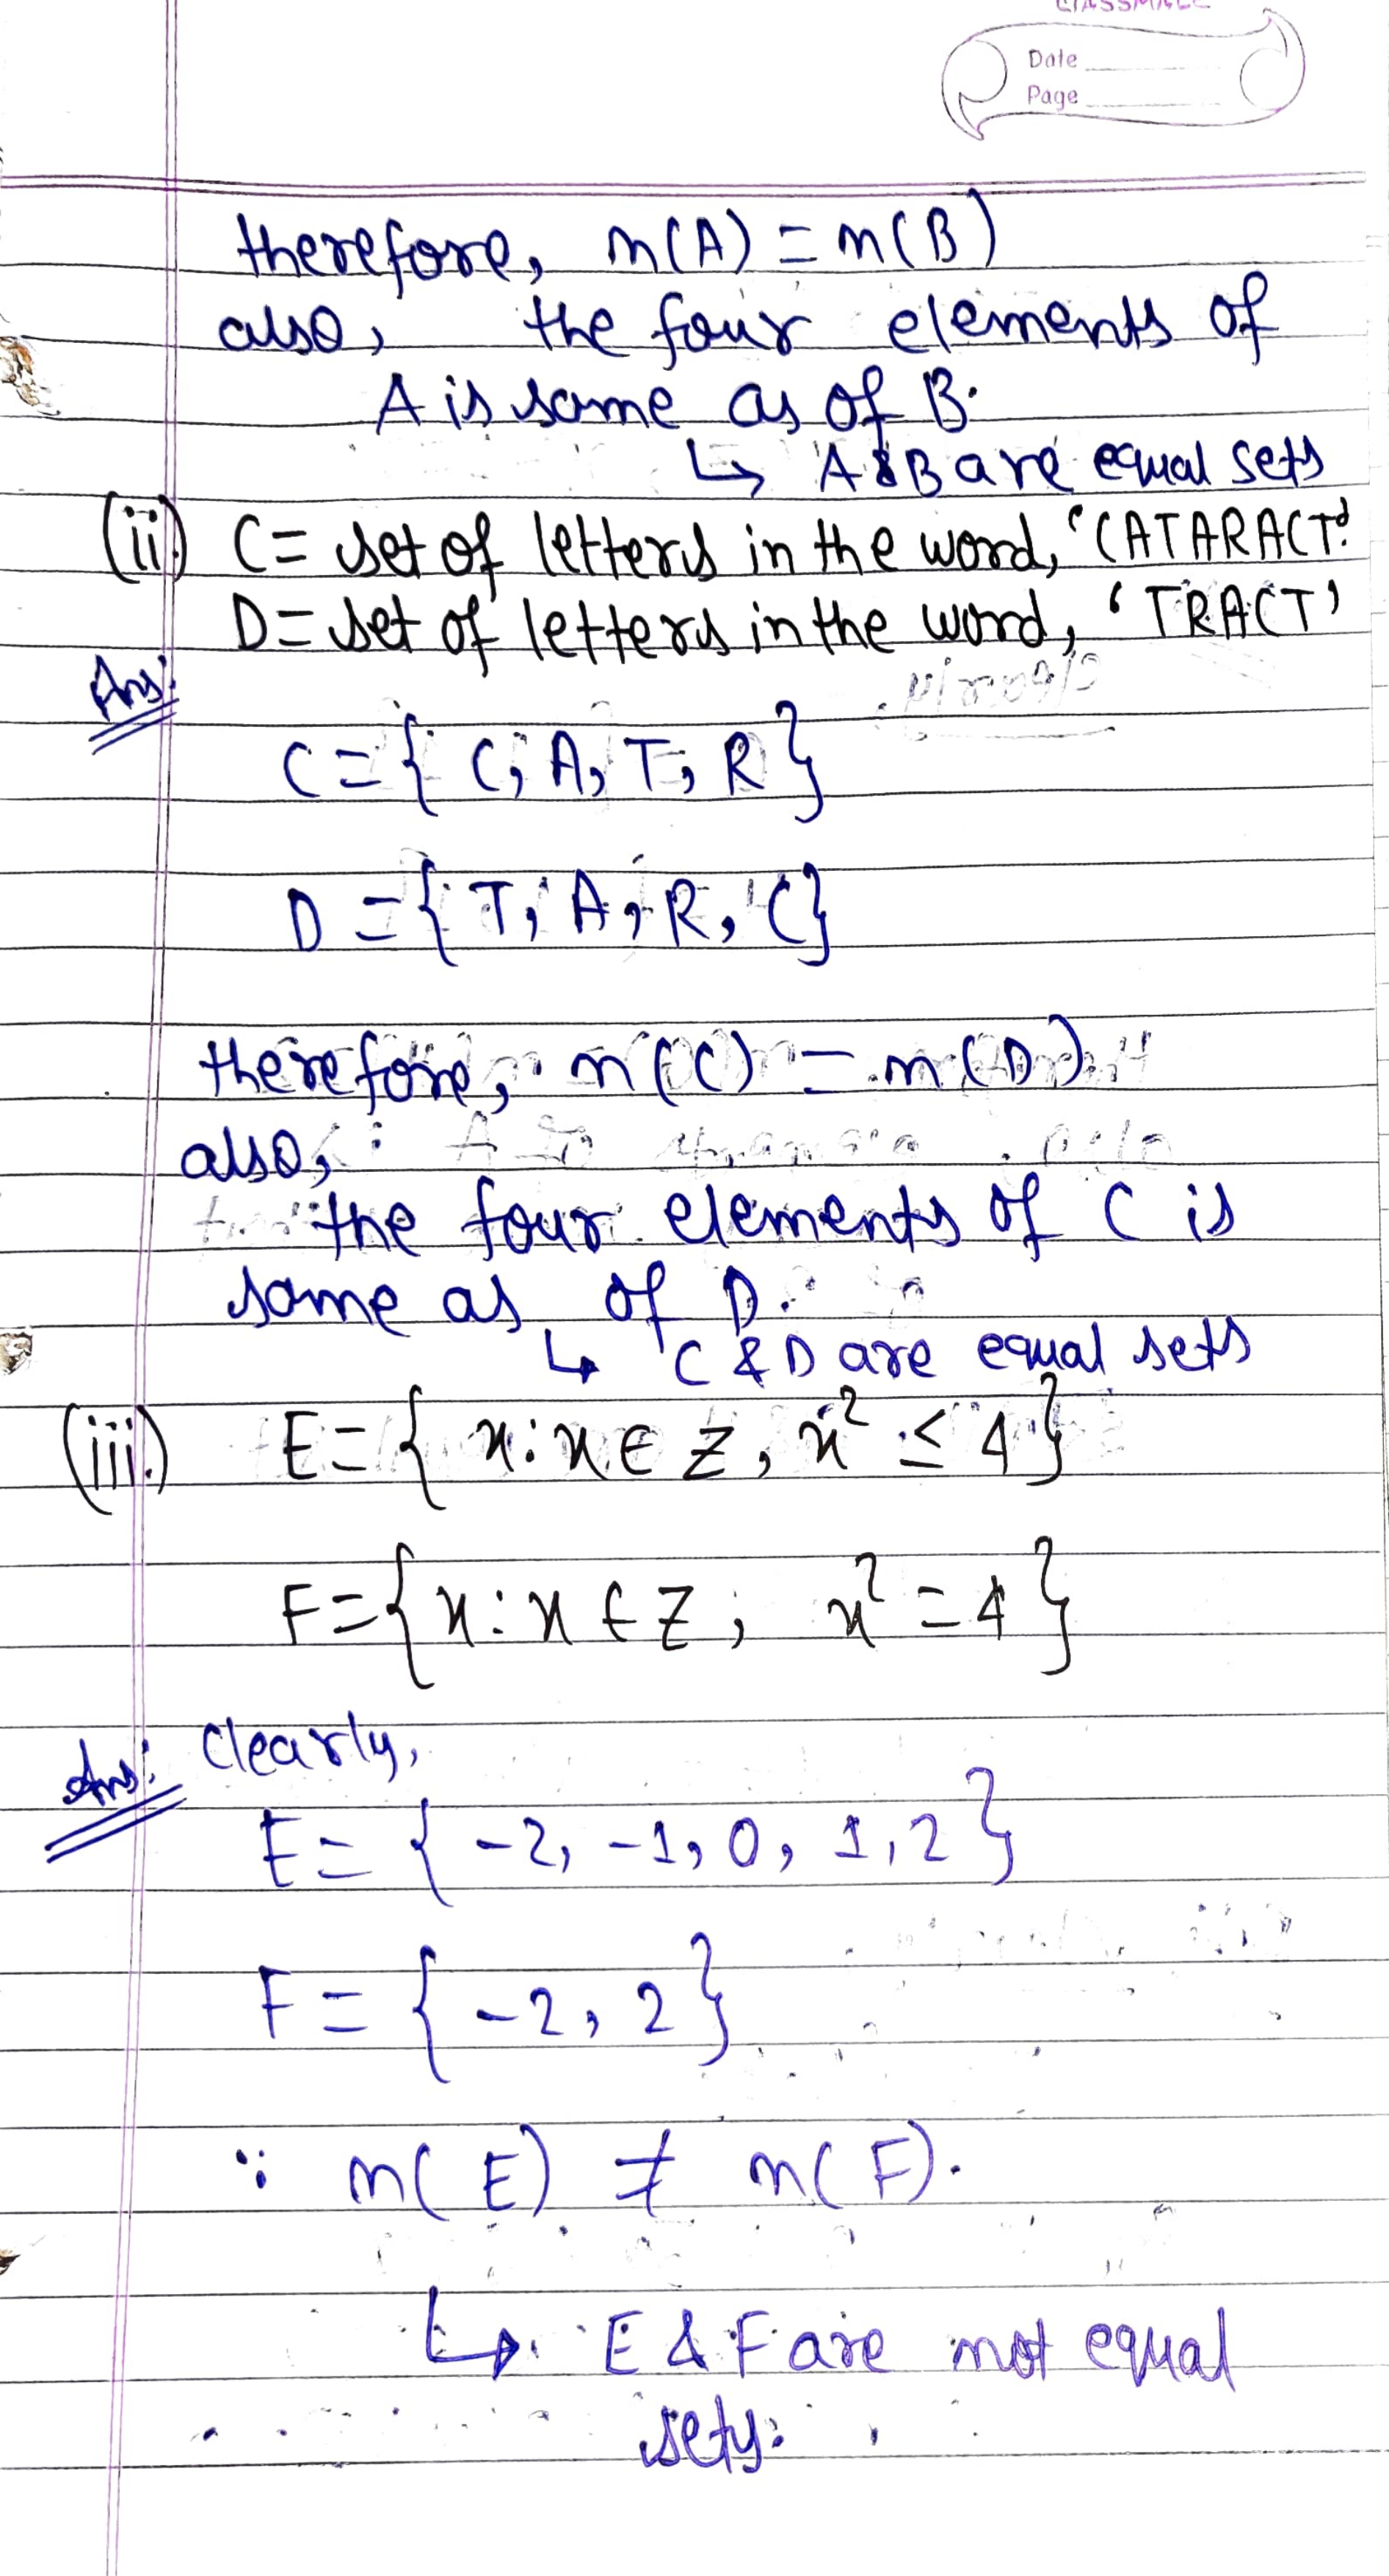 CLASSMATE
Date
Page
therefore, n(A) = n(B)
also, the four elements of
A is same as of B.
↳ A & B are equal sets
(ii) C = set of letters in the word, 'CATARACT'
D = set of letters in the word, 'TRACT'
Ans:
C = { C, A, T, R }
D = { T, A, R, C }
therefore, n(C) = n(D)
also,
the four elements of C is
same as of D.
↳ C & D are equal sets
(iii.) E = { x : x ∈ Z, x² ≤ 4 }
F = { x : x ∈ Z ; x² = 4 }
Ans: Clearly,
E = { -2, -1, 0, 1, 2 }
F = { -2, 2 }
∵ n(E) ≠ n(F).
↳ E & F are not equal
sets.